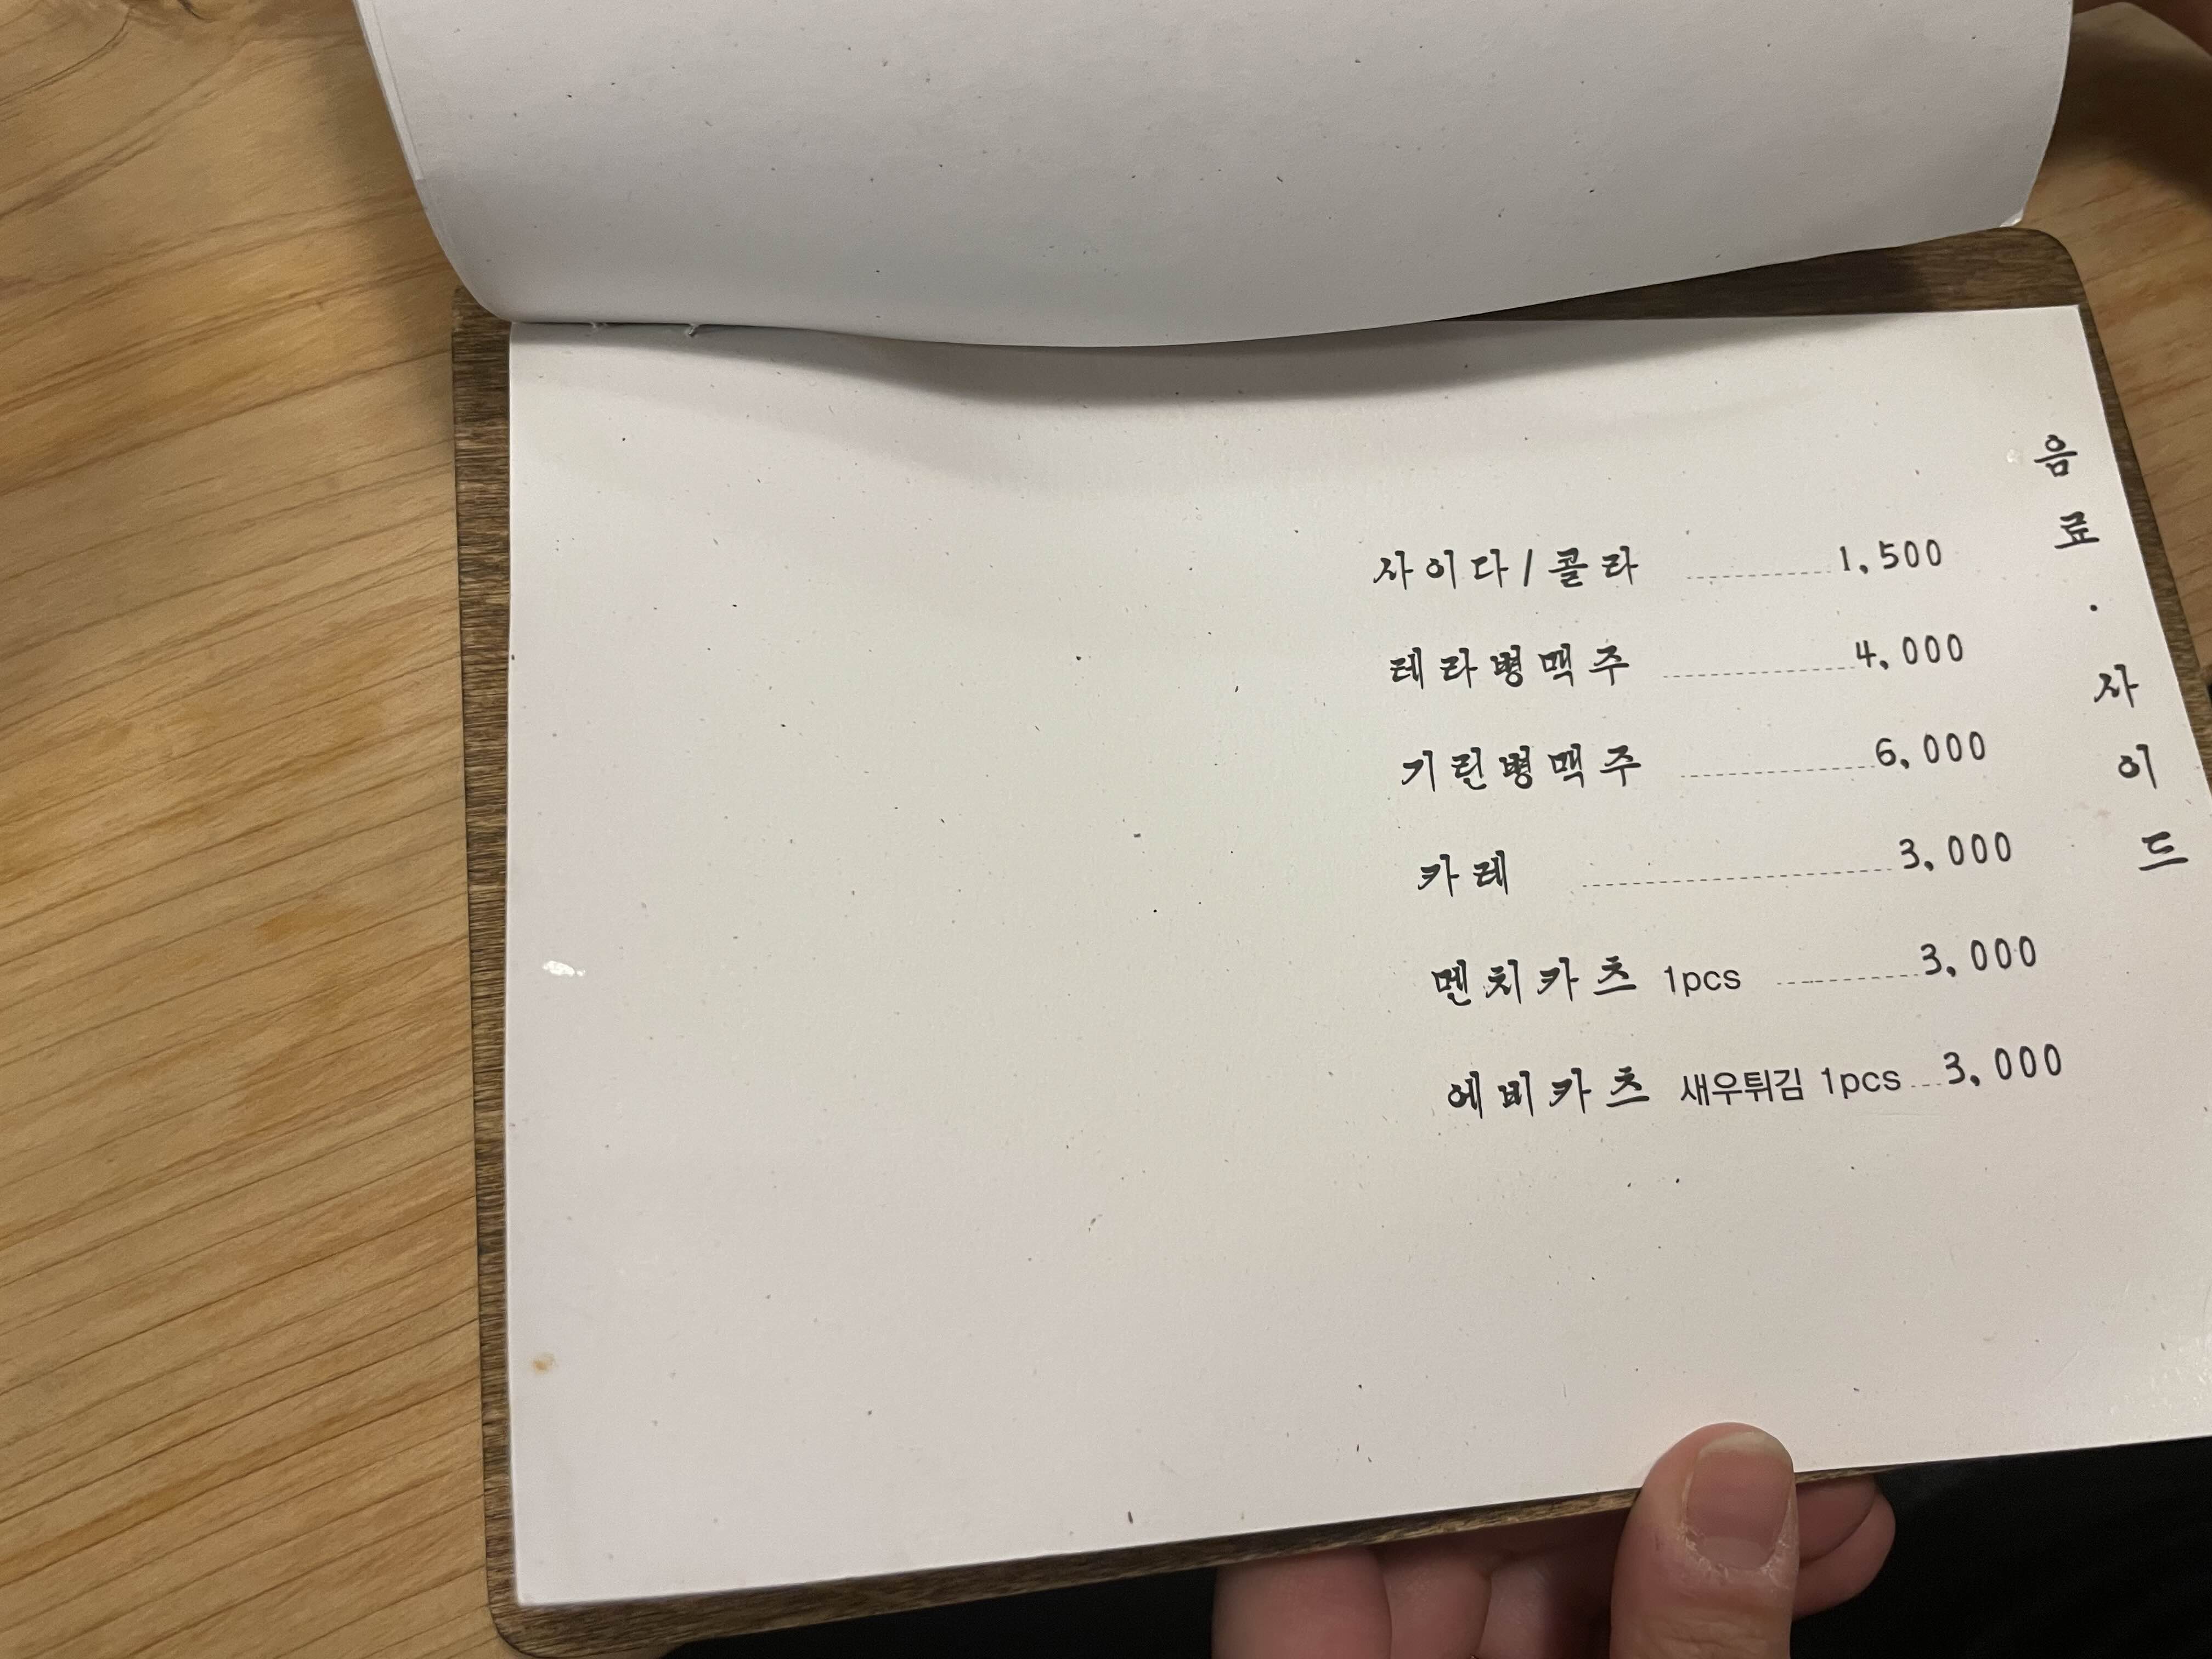 음료·사이드
사이다/콜라 1,500
테라병맥주 4,000
기린병맥주 6,000
카레 3,000
멘치카츠 1pcs 3,000
에비카츠 새우튀김 1pcs 3,000